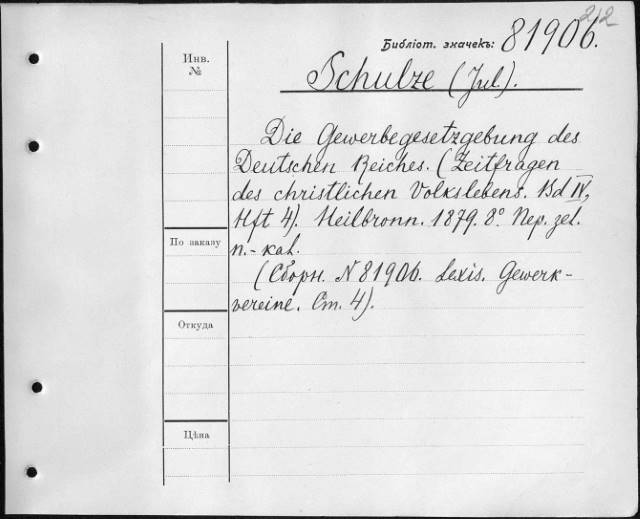 212
Библіот. значекъ: 81906.
Инв.
№
Schulze (Jul.).
Die Gewerbegesetzgebung des
Deutschen Reiches. (Zeitfragen
des christlichen Volkslebens. Bd IV,
Hft 4). Heilbronn. 1879. 8°. Пер. zel.
п.-kal.
По заказу
(Сборн. N 81906. Lexis. Gewerk-
vereine. Ст. 4).
Откуда
Цѣна